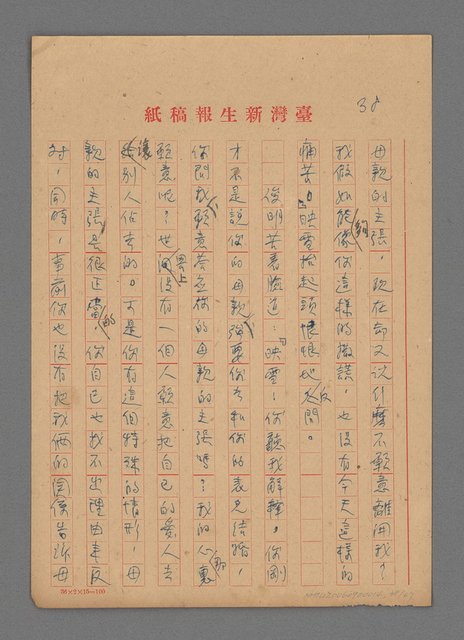 38
紙稿報生新灣臺
母親的主張，現在卻又說什麼不願意離開我？
我假如能夠像你這樣的撒謊，也沒有今天這樣的
痛苦。」映雪抬起頭恨恨地反問。
俊明苦着臉道：「映雪！你聽我解釋，你剛
才不是說你的母親強要你去和你的表兄結婚，
你問我願意答應你的母親的主張嗎？我的心裏那
願意呢？世界上沒有一個人願意把自己的愛人去
讓別人佔去的。可是你有這個特殊的情形，母
親的主張是很正當的，你自己也找不出理由來反
對，同時，事前你也沒有把我倆的關係告訴母
36×2×15=100